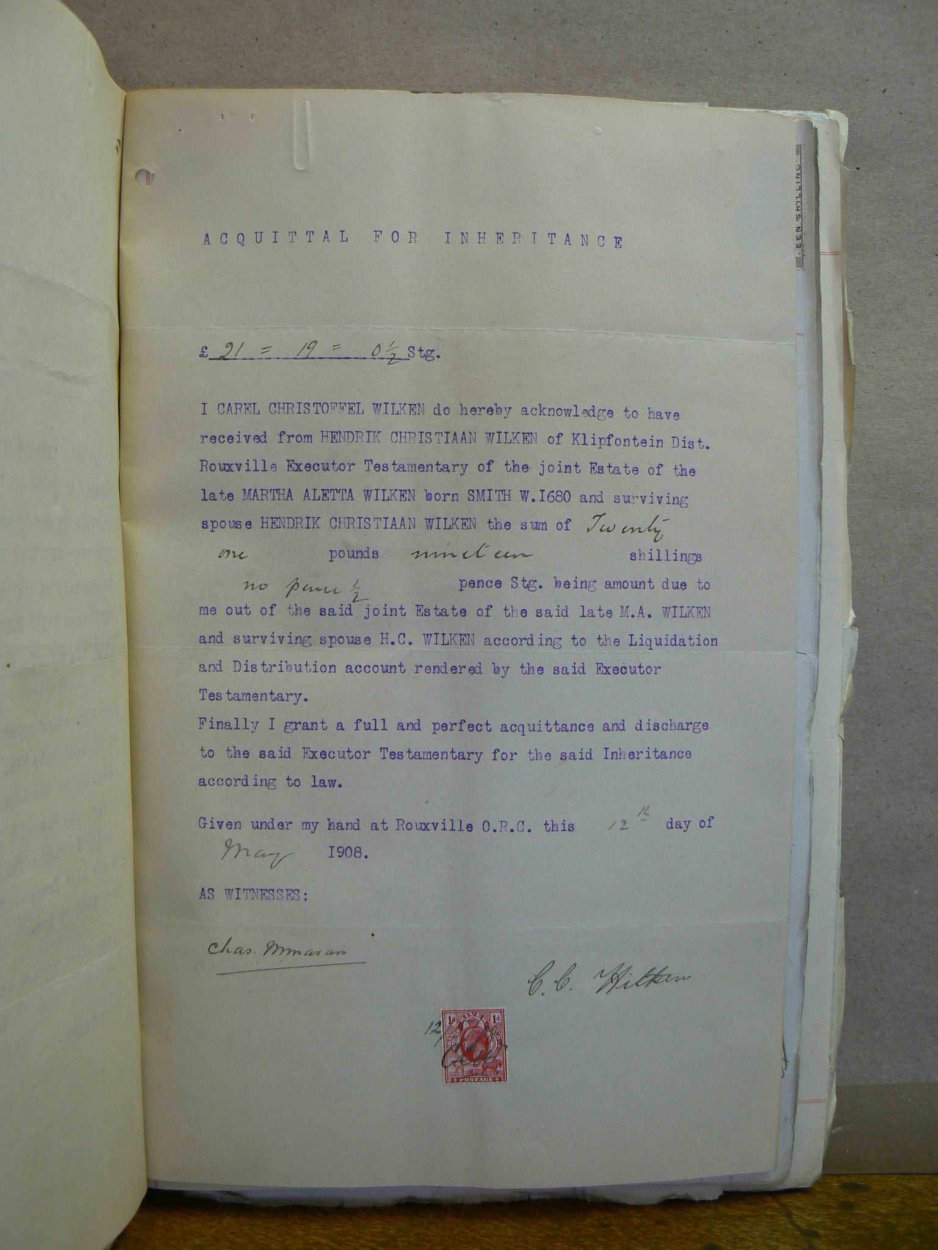 EEN SHILLING
ACQUITTAL FOR INHERITANCE
£ 21 = 19 = 0½ Stg.
I CAREL CHRISTOFFEL WILKEN do hereby acknowledge to have
received from HENDRIK CHRISTIAAN WILKEN of Klipfontein Dist.
Rouxville Executor Testamentary of the joint Estate of the
late MARTHA ALETTA WILKEN born SMITH W.I680 and surviving
spouse HENDRIK CHRISTIAAN WILKEN the sum of Twenty
one pounds nineteen shillings
no pence ½ pence Stg. being amount due to
me out of the said joint Estate of the said late M.A. WILKEN
and surviving spouse H.C. WILKEN according to the Liquidation
and Distribution account rendered by the said Executor
Testamentary.
Finally I grant a full and perfect acquittance and discharge
to the said Executor Testamentary for the said Inheritance
according to law.
Given under my hand at Rouxville O.R.C. this 12th day of
May I908.
AS WITNESSES:
Chas.
C.C. Wilken
12/
POSTAGE